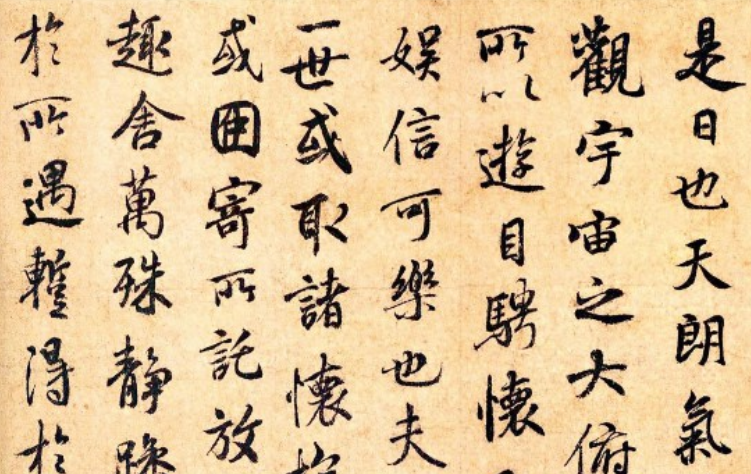 是日也天朗氣
觀宇宙之大俯
所以遊目騁懷
娛信可樂也夫
一世或取諸懷
或因寄所託放
趣舍萬殊靜躁
於所遇蹔得於